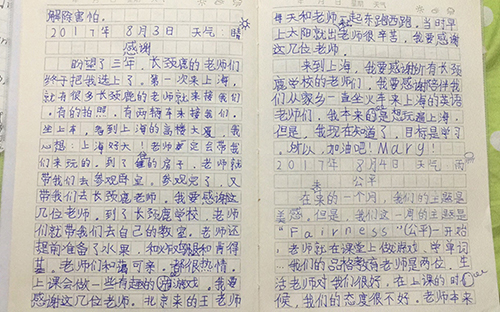 解除害怕。
2017年8月3日 天气 晴
感谢
盼望了三年,长颈鹿的老师们
终于把我选上了。第一次来上海,
就有很多长颈鹿的老师就来接我们
,有的拍照,有两辆车来接我们。
坐上车,看到上海的高楼大厦,我
心想:上海好大,老师肯定会带我
们来玩的。到了 的房子,老师就
带我们去参观寝室。参观完了,又
带我们去长颈鹿老师。我要感谢这
几位老师,到了长颈鹿学校,老师
们就带我们去自己的教室。老师还
提前准备了水果、和火龙 和肯得
基。老师们和蔼可亲,都很热情。
上课会做一些有趣的 游戏。我要
感谢这几位老师。北京来的王老师
每天和老师一起东跑西路,当时早
上太阳就出老师很辛苦,我要感谢
这几位老师。
来到上海,我要感谢所有长颈
鹿学校的老师们,我要感谢陪伴我
们从家乡一直坐火车来上海的英语
老师们,我本来 是想玩遍上海,
但是,我现在知道了,目标是学习
,所以,加油吧!Mary!
2017年8月4日 天气 雨
公平
在来的一个月,我们的主题是
美感,但是,我们这一周的主题是
"Fairness"(公平)一开始
,老师就在课堂上做游戏,学单词
,我们的品格教育老师是两位,生
活老师对我们很好,在上课的时
候,我们的态度很不好。老师本来